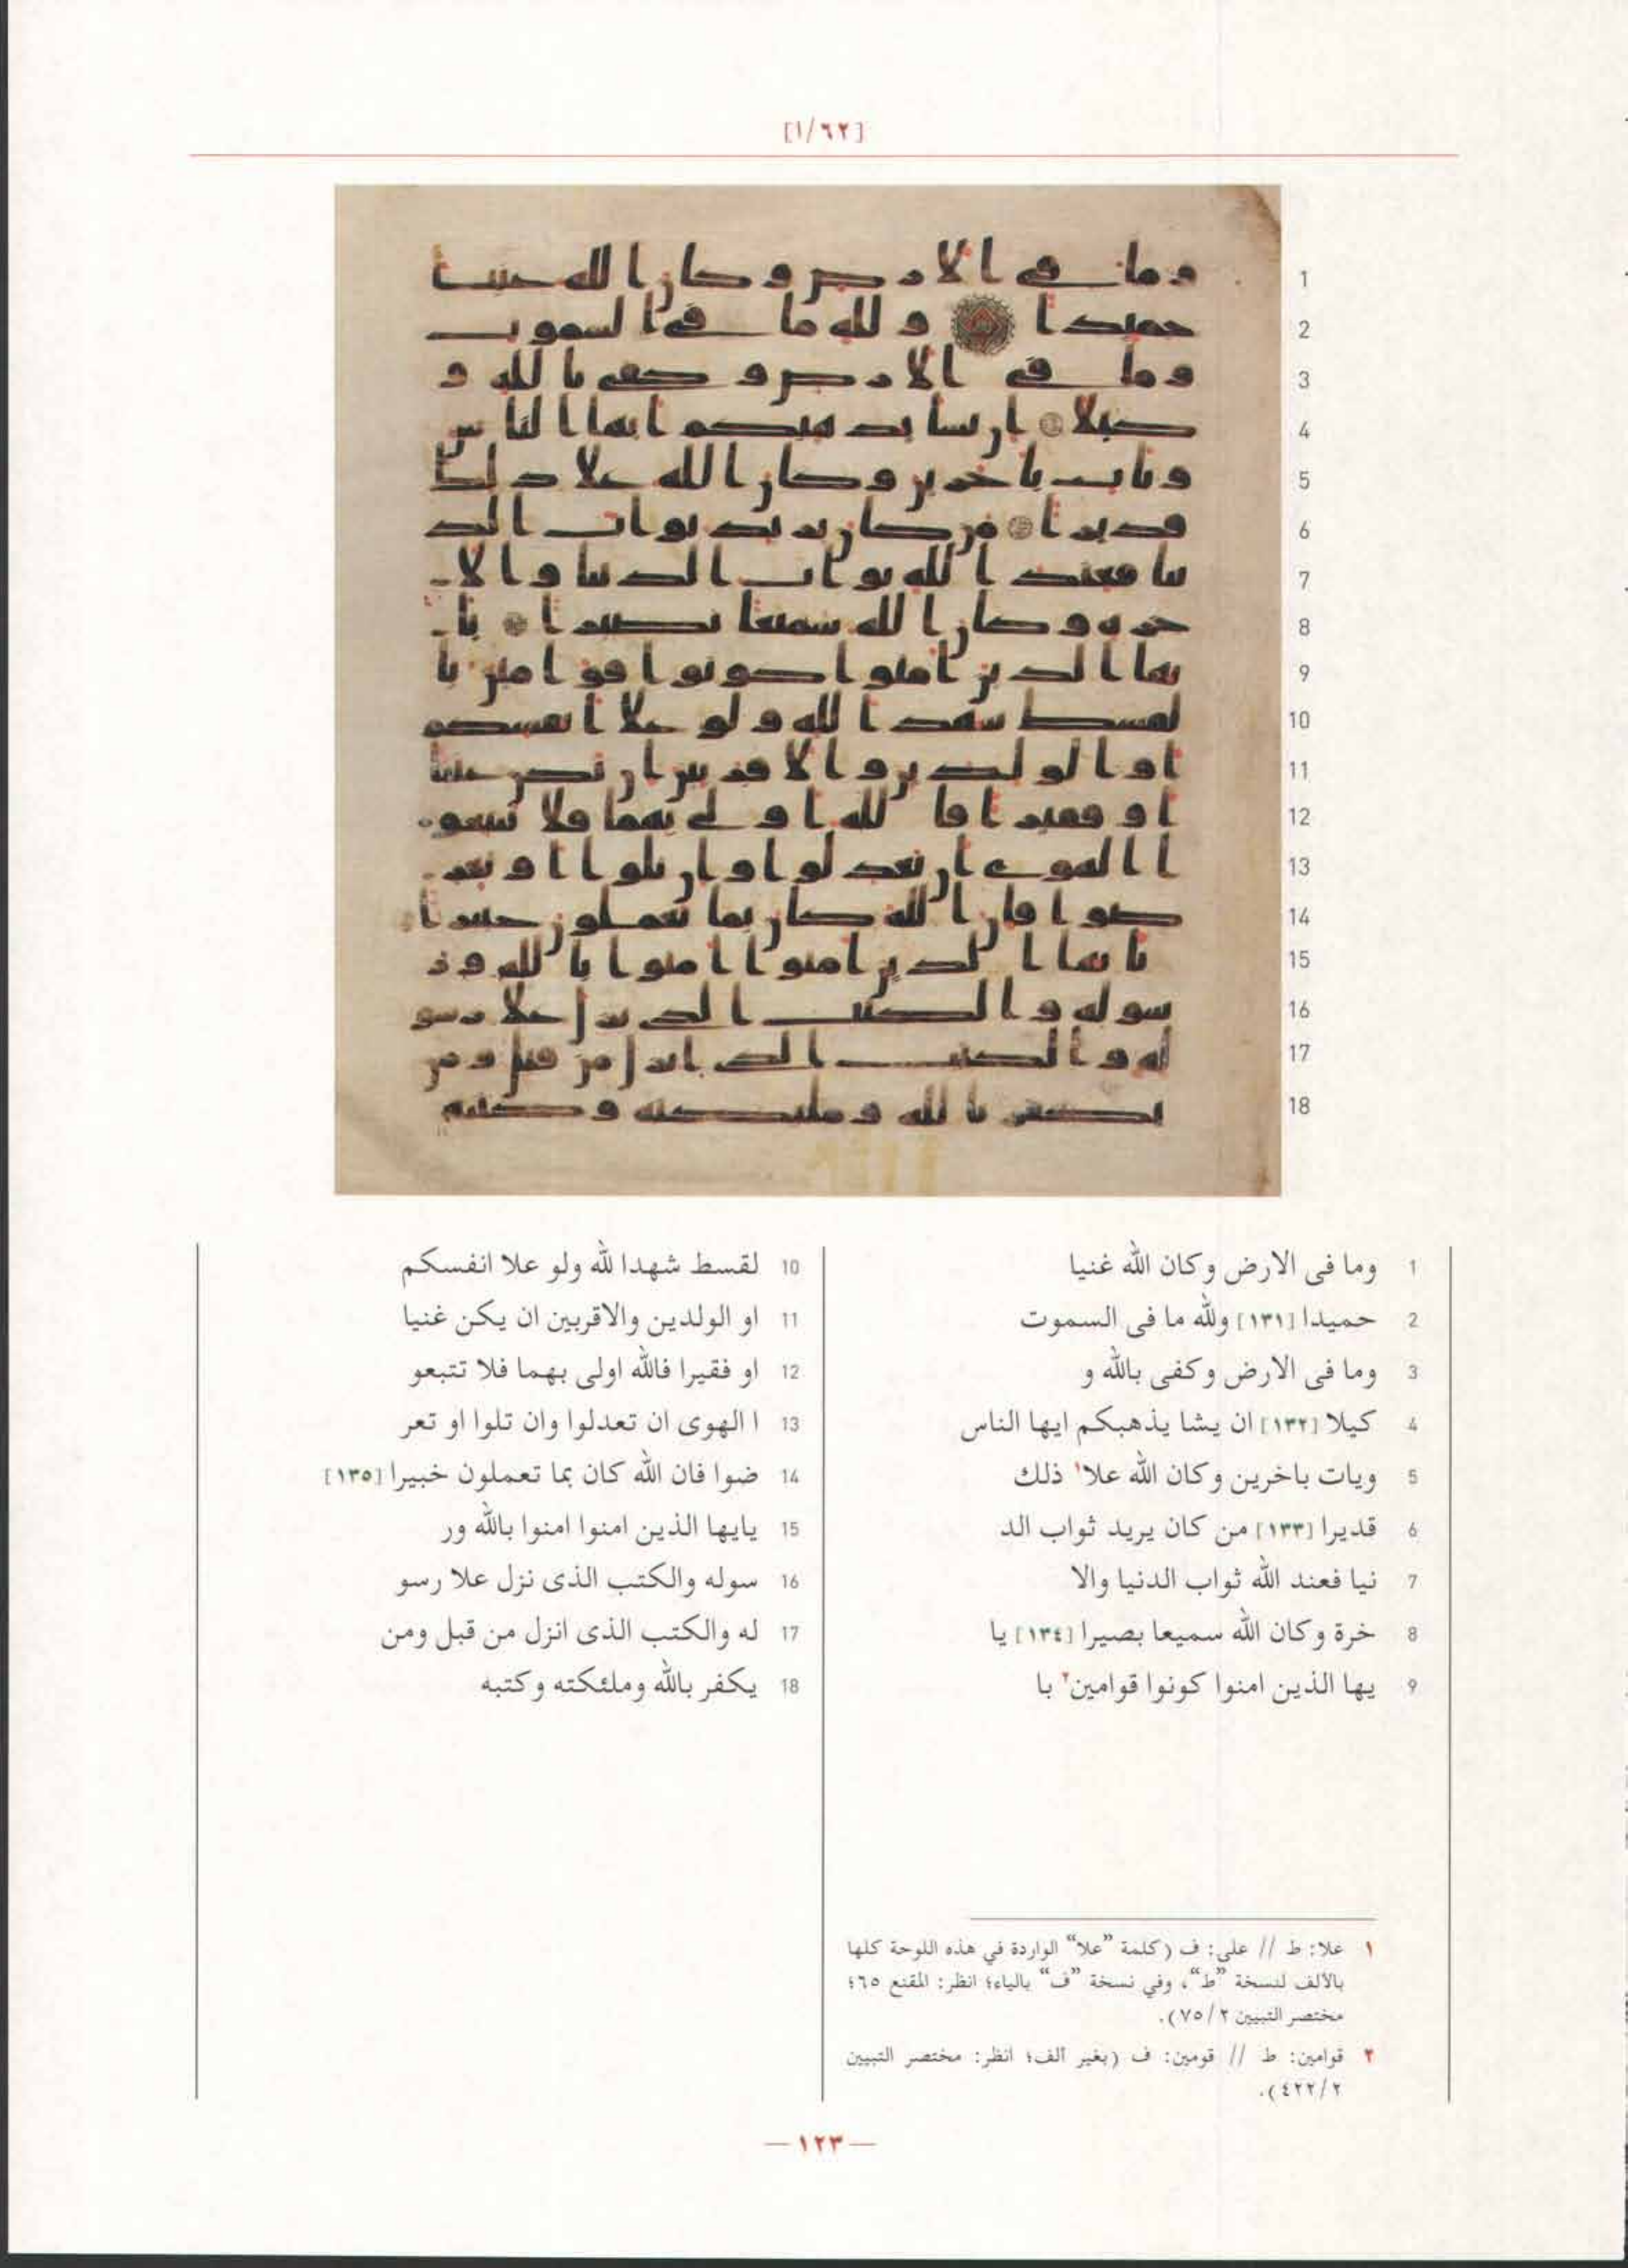 [٦٢/١]
1 وما فى الارض وكان الله غنيا
2 حميدا [١٣١] ولله ما فى السموت
3 وما فى الارض وكفى بالله و
4 كيلا [١٣٢] ان يشا يذهبكم ايها الناس
5 ويات باخرين وكان الله علا١ ذلك
6 قديرا [١٣٣] من كان يريد ثواب الد
7 نيا فعند الله ثواب الدنيا والا
8 خرة وكان الله سميعا بصيرا [١٣٤] يا
9 يها الذين امنوا كونوا قوامين٢ با
10 لقسط شهدا لله ولو علا انفسكم
11 او الولدين والاقربين ان يكن غنيا
12 او فقيرا فالله اولى بهما فلا تتبعو
13 ا الهوى ان تعدلوا وان تلوا او تعر
14 ضوا فان الله كان بما تعملون خبيرا [١٣٥]
15 يايها الذين امنوا امنوا بالله ور
16 سوله والكتب الذى نزل علا رسو
17 له والكتب الذى انزل من قبل ومن
18 يكفر بالله وملئكته وكتبه
١ علا: ط // على: ف (كلمة ”علا“ الواردة في هذه اللوحة كلها
بالألف لنسخة ”ط“، وفي نسخة ”ف“ بالياء؛ انظر: المقنع ٦٥؛
مختصر التبيين ٧٥/٢).
٢ قوامين: ط // قومين: ف (بغير ألف؛ انظر: مختصر التبيين
٤٢٢/٢).
— ١٢٣ —